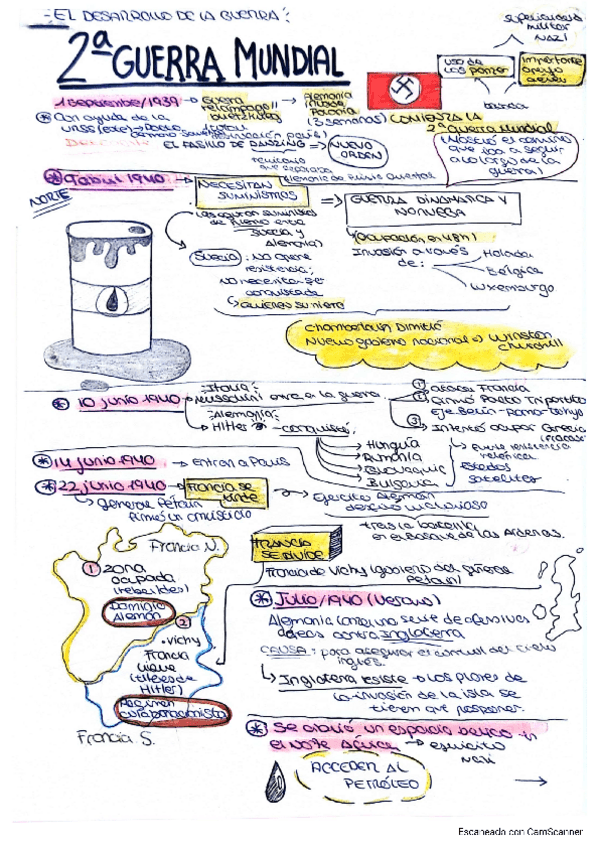 -EL DESARROLLO DE LA GUERRA:
2ª GUERRA MUNDIAL
superioridad
militar
NAZI
uso de
los panzer
importante
apoyo
aéreo
1 septiembre/1939 → Guerra
relámpago
Alemania
invade
Polonia
(3 semanas) COMIENZA LA
2ª Guerra Mundial
* Con ayuda de la
URSS
EL PASILLO DE DANZING ⇒ NUEVO
ORDEN
(Mostró el camino
que iba a seguir
a lo largo de la
guerra)
* 9 abril 1940
NORTE
NECESITAN
SUMINISTROS
⇒ GUERRA DINAMARCA Y
NORUEGA
de hierro entre
Suecia y
Alemania)
Suecia: NO opone
resistencia;
no necesita ser
conquistada
(Ocupación en 48h)
Invasión a través
de:
Holanda
Bélgica
Luxemburgo
Chamberlain Dimitió
Nuevo gobierno nacional ⇒ Winston
Churchill
* 10 junio 1940
Italia:
Mussolini entra en la guerra
1 atacar Francia
2 firmó Pacto Tripartito
Eje Berlín-Roma-Tokyo
3 Intentó ocupar Grecia
(fracasa)
Alemania:
Hitler → conquista:
Hungría
Rumanía
Eslovaquia
Bulgaria
Estados
satélites
* 14 junio 1940 → entran a París
* 22 junio 1940 → Francia se
rinde
→ Ejército Alemán
general Petain
firmó un armisticio
tras la batalla
en el bosque de las Ardenas.
Francia N.
1 zona
ocupada
(rebeldes)
Dominio
Alemán
2
.vichy
Francia
Libre
(títeres de
Hitler)
Régimen
colaboracionista
Francia S.
FRANCIA
SE DIVIDE
Francia de Vichy (gobierno del general
Petain)
* Julio/1940 (Verano)
Alemania lanza una serie de ofensivas
aéreas contra Inglaterra
CAUSA: para asegurar el control del cielo
inglés.
→ Inglaterra resiste → Los planes de
la invasión de la isla se
tienen que posponer.
* Se abrió un espacio bélico en
el Norte África → ejército
Nazi
ACCEDER AL
PETRÓLEO
Escaneado con CamScanner